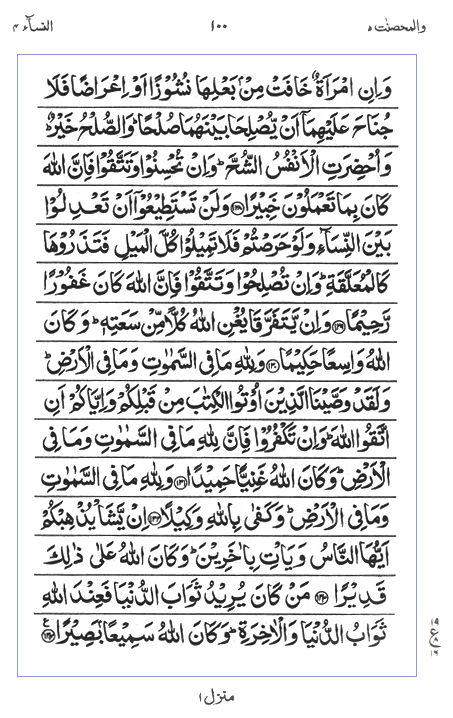 والمحصنت ۵ ۱۰۰ النسآء ۴
وَاِنِ امْرَاَةٌ خَافَتْ مِنْۢ بَعْلِهَا نُشُوْزًا اَوْ اِعْرَاضًا فَلَا
جُنَاحَ عَلَيْهِمَاۤ اَنْ يُّصْلِحَا بَيْنَهُمَا صُلْحًا ؕ وَالصُّلْحُ خَيْرٌ ؕ
وَاُحْضِرَتِ الْاَنْفُسُ الشُّحَّ ؕ وَاِنْ تُحْسِنُوْا وَتَتَّقُوْا فَاِنَّ اللّٰهَ
كَانَ بِمَا تَعْمَلُوْنَ خَبِيْرًا ﴿۱۲۸﴾ وَلَنْ تَسْتَطِيْعُوْۤا اَنْ تَعْدِلُوْا
بَيْنَ النِّسَآءِ وَلَوْ حَرَصْتُمْ فَلَا تَمِيْلُوْا كُلَّ الْمَيْلِ فَتَذَرُوْهَا
كَالْمُعَلَّقَةِ ؕ وَاِنْ تُصْلِحُوْا وَتَتَّقُوْا فَاِنَّ اللّٰهَ كَانَ غَفُوْرًا
رَّحِيْمًا ﴿۱۲۹﴾ وَاِنْ يَّتَفَرَّقَا يُغْنِ اللّٰهُ كُلًّا مِّنْ سَعَتِهٖ ؕ وَكَانَ
اللّٰهُ وَاسِعًا حَكِيْمًا ﴿۱۳۰﴾ وَلِلّٰهِ مَا فِى السَّمٰوٰتِ وَمَا فِى الْاَرْضِ ؕ
وَلَقَدْ وَصَّيْنَا الَّذِيْنَ اُوْتُوا الْكِتٰبَ مِنْ قَبْلِكُمْ وَاِيَّاكُمْ اَنِ
اتَّقُوا اللّٰهَ ؕ وَاِنْ تَكْفُرُوْا فَاِنَّ لِلّٰهِ مَا فِى السَّمٰوٰتِ وَمَا فِى
الْاَرْضِ ؕ وَكَانَ اللّٰهُ غَنِيًّا حَمِيْدًا ﴿۱۳۱﴾ وَلِلّٰهِ مَا فِى السَّمٰوٰتِ
وَمَا فِى الْاَرْضِ ؕ وَكَفٰى بِاللّٰهِ وَكِيْلًا ﴿۱۳۲﴾ اِنْ يَّشَاْ يُذْهِبْكُمْ
اَيُّهَا النَّاسُ وَيَاْتِ بِاٰخَرِيْنَ ؕ وَكَانَ اللّٰهُ عَلٰى ذٰلِكَ
قَدِيْرًا ﴿۱۳۳﴾ مَنْ كَانَ يُرِيْدُ ثَوَابَ الدُّنْيَا فَعِنْدَ اللّٰهِ
ثَوَابُ الدُّنْيَا وَالْاٰخِرَةِ ؕ وَكَانَ اللّٰهُ سَمِيْعًۢا بَصِيْرًا ﴿۱۳۴﴾
منزل ۱